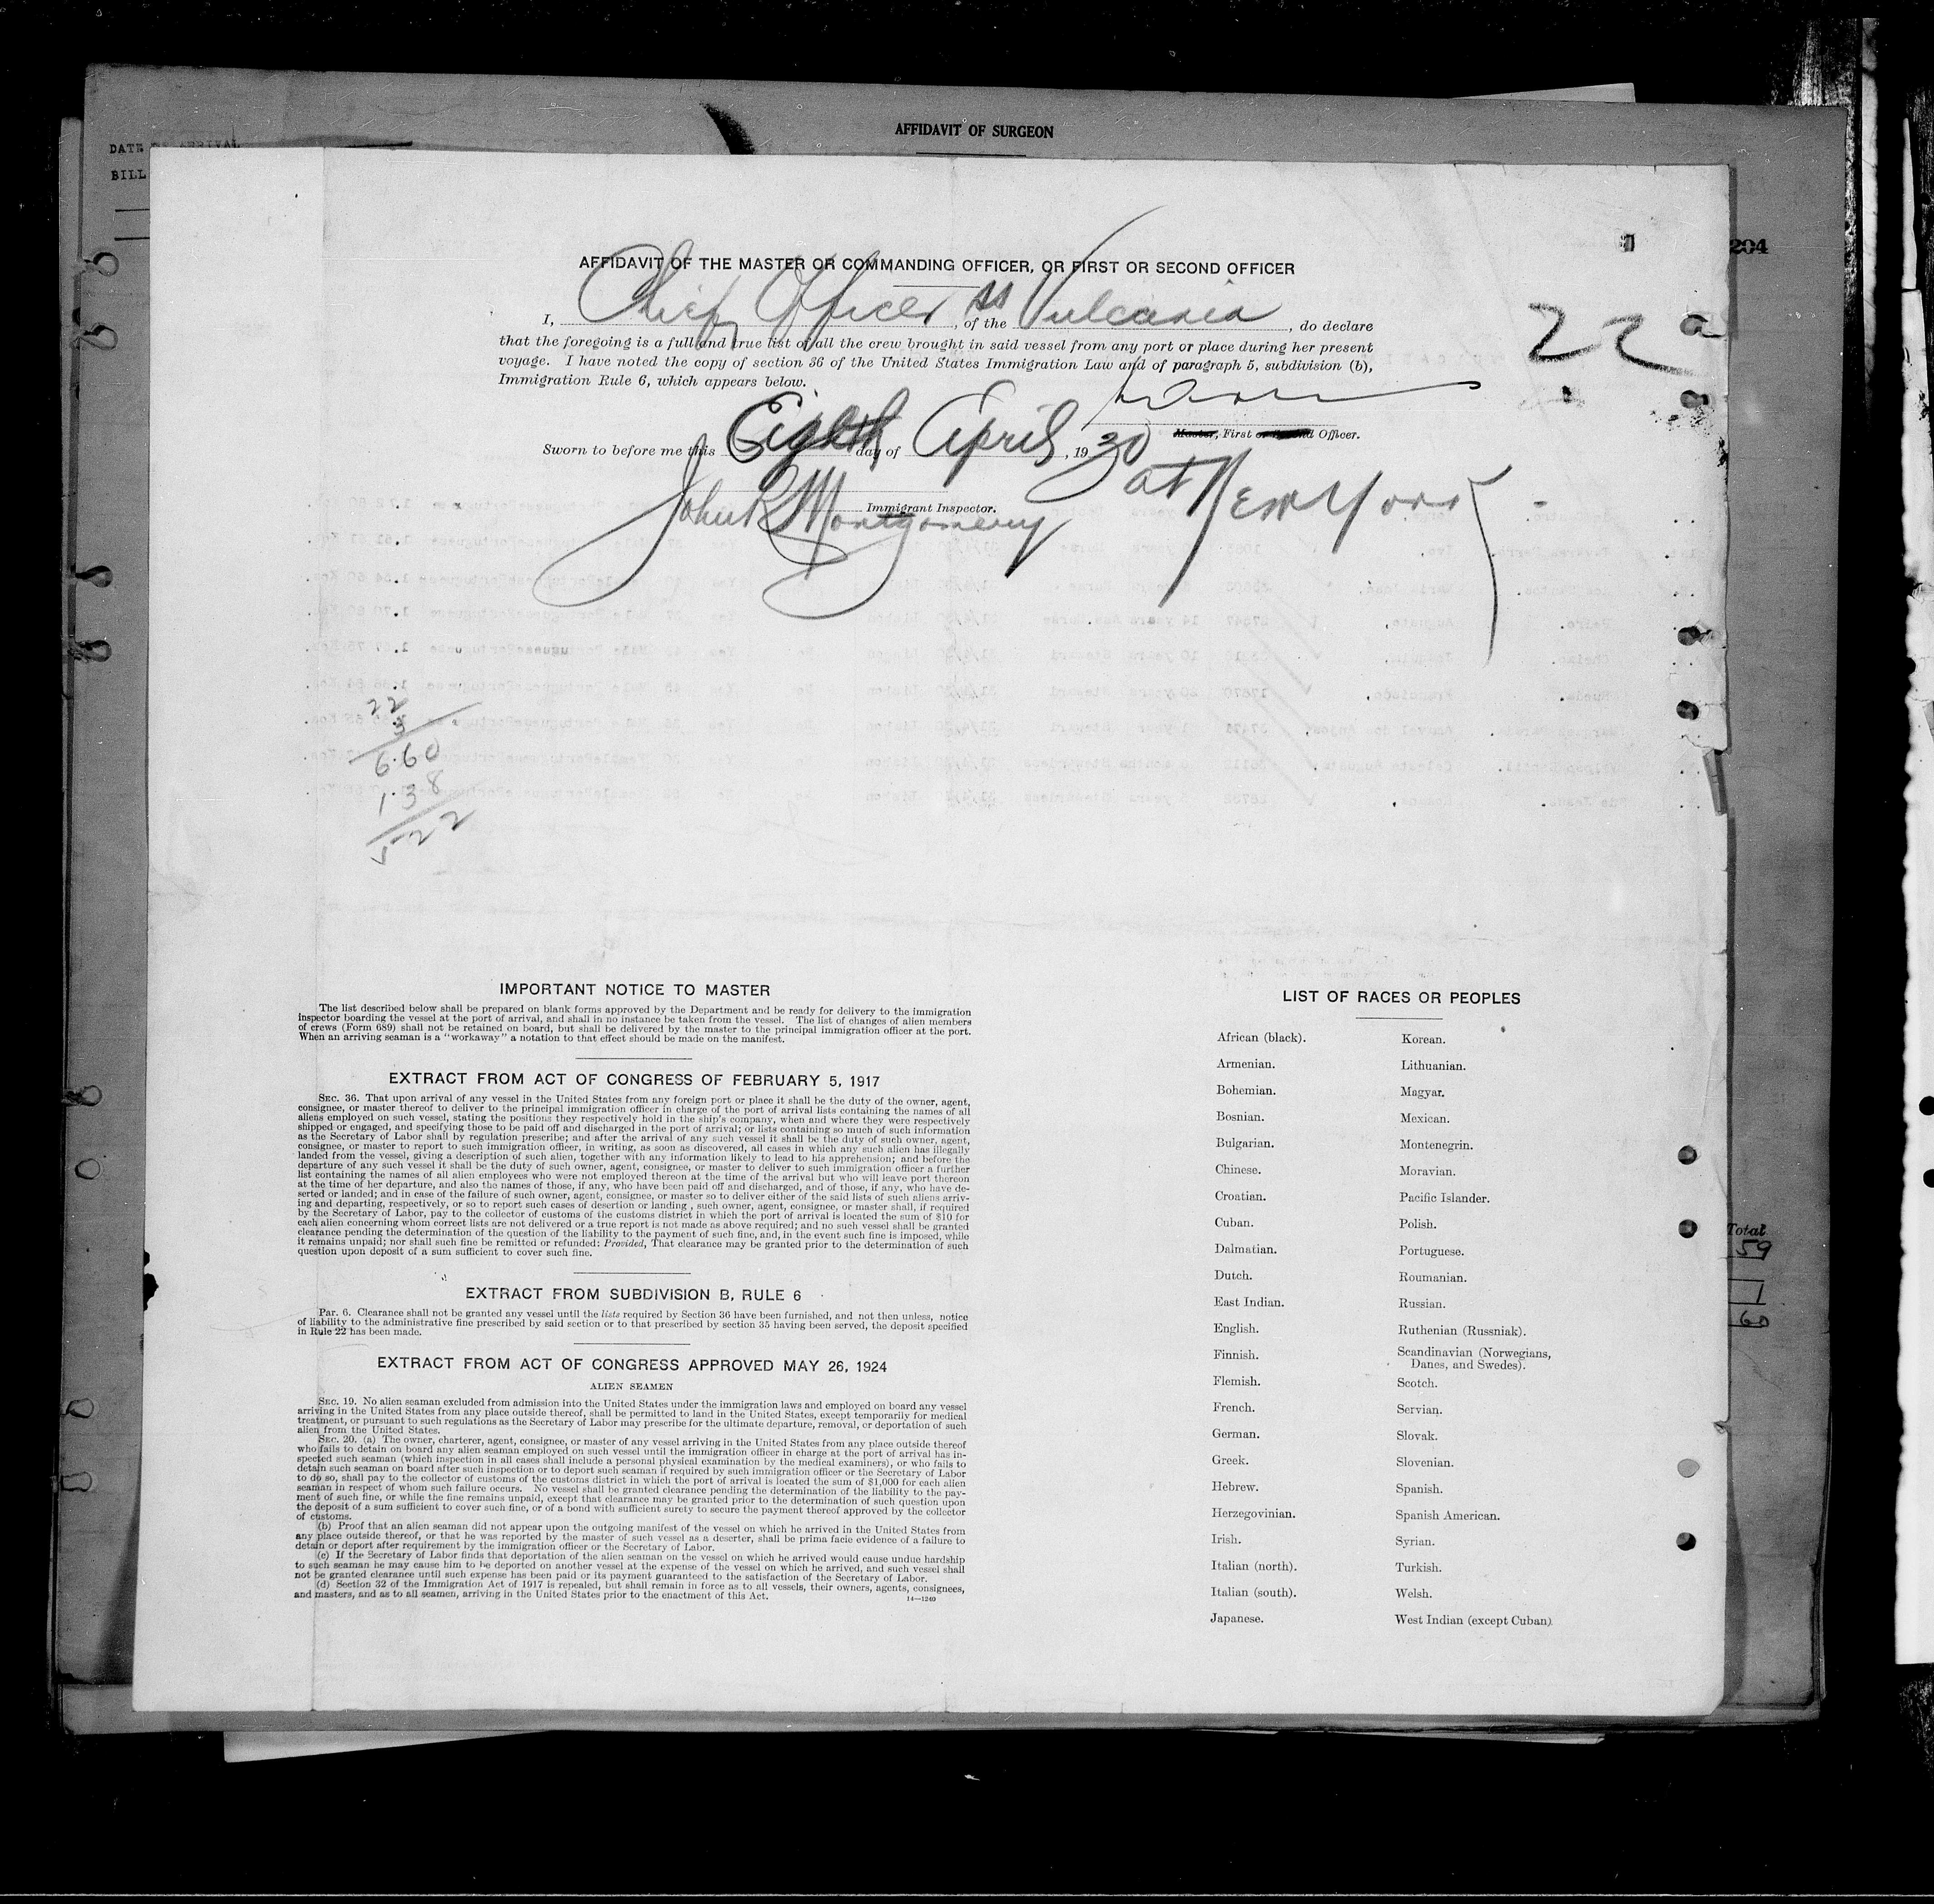 AFFIDAVIT OF SURGEON
DATE OF ARRIVAL
BILL
204
AFFIDAVIT OF THE MASTER OR COMMANDING OFFICER, OR FIRST OR SECOND OFFICER
I, Chief Officer, of the SS Vulcania, do declare
that the foregoing is a full and true list of all the crew brought in said vessel from any port or place during her present
voyage. I have noted the copy of section 36 of the United States Immigration Law and of paragraph 5, subdivision (b),
Immigration Rule 6, which appears below.
22
Master, First or Second Officer.
Sworn to before me this Eighth day of April, 1930
at New York
John R Montgomery
Immigrant Inspector.
22
3
6.60
1.38
522
IMPORTANT NOTICE TO MASTER
The list described below shall be prepared on blank forms approved by the Department and be ready for delivery to the immigration
inspector boarding the vessel at the port of arrival, and shall in no instance be taken from the vessel. The list of changes of alien members
of crews (Form 689) shall not be retained on board, but shall be delivered by the master to the principal immigration officer at the port.
When an arriving seaman is a "workaway" a notation to that effect should be made on the manifest.
EXTRACT FROM ACT OF CONGRESS OF FEBRUARY 5, 1917
SEC. 36. That upon arrival of any vessel in the United States from any foreign port or place it shall be the duty of the owner, agent,
consignee, or master thereof to deliver to the principal immigration officer in charge of the port of arrival lists containing the names of all
aliens employed on such vessel, stating the positions they respectively hold in the ship's company, when and where they were respectively
shipped or engaged, and specifying those to be paid off and discharged in the port of arrival; or lists containing so much of such information
as the Secretary of Labor shall by regulation prescribe; and after the arrival of any such vessel it shall be the duty of such owner, agent,
consignee, or master to report to such immigration officer, in writing, as soon as discovered, all cases in which any such alien has illegally
landed from the vessel, giving a description of such alien, together with any information likely to lead to his apprehension; and before the
departure of any such vessel it shall be the duty of such owner, agent, consignee, or master to deliver to such immigration officer a further
list containing the names of all alien employees who were not employed thereon at the time of the arrival but who will leave port thereon
at the time of her departure, and also the names of those, if any, who have been paid off and discharged, and of those, if any, who have de-
serted or landed; and in case of the failure of such owner, agent, consignee, or master so to deliver either of the said lists of such aliens arriv-
ing and departing, respectively, or so to report such cases of desertion or landing , such owner, agent, consignee, or master shall, if required
by the Secretary of Labor, pay to the collector of customs of the customs district in which the port of arrival is located the sum of $10 for
each alien concerning whom correct lists are not delivered or a true report is not made as above required; and no such vessel shall be granted
clearance pending the determination of the question of the liability to the payment of such fine, and, in the event such fine is imposed, while
it remains unpaid; nor shall such fine be remitted or refunded: Provided, That clearance may be granted prior to the determination of such
question upon deposit of a sum sufficient to cover such fine.
EXTRACT FROM SUBDIVISION B, RULE 6
Par. 6. Clearance shall not be granted any vessel until the lists required by Section 36 have been furnished, and not then unless, notice
of liability to the administrative fine prescribed by said section or to that prescribed by section 35 having been served, the deposit specified
in Rule 22 has been made.
EXTRACT FROM ACT OF CONGRESS APPROVED MAY 26, 1924
ALIEN SEAMEN
SEC. 19. No alien seaman excluded from admission into the United States under the immigration laws and employed on board any vessel
arriving in the United States from any place outside thereof, shall be permitted to land in the United States, except temporarily for medical
treatment, or pursuant to such regulations as the Secretary of Labor may prescribe for the ultimate departure, removal, or deportation of such
alien from the United States.
SEC. 20. (a) The owner, charterer, agent, consignee, or master of any vessel arriving in the United States from any place outside thereof
who fails to detain on board any alien seaman employed on such vessel until the immigration officer in charge at the port of arrival has in-
spected such seaman (which inspection in all cases shall include a personal physical examination by the medical examiners), or who fails to
detain such seaman on board after such inspection or to deport such seaman if required by such immigration officer or the Secretary of Labor
to do so, shall pay to the collector of customs of the customs district in which the port of arrival is located the sum of $1,000 for each alien
seaman in respect of whom such failure occurs. No vessel shall be granted clearance pending the determination of the liability to the pay-
ment of such fine, or while the fine remains unpaid, except that clearance may be granted prior to the determination of such question upon
the deposit of a sum sufficient to cover such fine, or of a bond with sufficient surety to secure the payment thereof approved by the collector
of customs.
(b) Proof that an alien seaman did not appear upon the outgoing manifest of the vessel on which he arrived in the United States from
any place outside thereof, or that he was reported by the master of such vessel as a deserter, shall be prima facie evidence of a failure to
detain or deport after requirement by the immigration officer or the Secretary of Labor.
(c) If the Secretary of Labor finds that deportation of the alien seaman on the vessel on which he arrived would cause undue hardship
to such seaman he may cause him to be deported on another vessel at the expense of the vessel on which he arrived, and such vessel shall
not be granted clearance until such expense has been paid or its payment guaranteed to the satisfaction of the Secretary of Labor.
(d) Section 32 of the Immigration Act of 1917 is repealed, but shall remain in force as to all vessels, their owners, agents, consignees,
and masters, and as to all seamen, arriving in the United States prior to the enactment of this Act.
14—1240
LIST OF RACES OR PEOPLES
African (black). Korean.
Armenian. Lithuanian.
Bohemian. Magyar.
Bosnian. Mexican.
Bulgarian. Montenegrin.
Chinese. Moravian.
Croatian. Pacific Islander.
Cuban. Polish.
Dalmatian. Portuguese.
Dutch. Roumanian.
East Indian. Russian.
English. Ruthenian (Russniak).
Finnish. Scandinavian (Norwegians,
Danes, and Swedes).
Flemish. Scotch.
French. Servian.
German. Slovak.
Greek. Slovenian.
Hebrew. Spanish.
Herzegovinian. Spanish American.
Irish. Syrian.
Italian (north). Turkish.
Italian (south). Welsh.
Japanese. West Indian (except Cuban)
Total
59
60